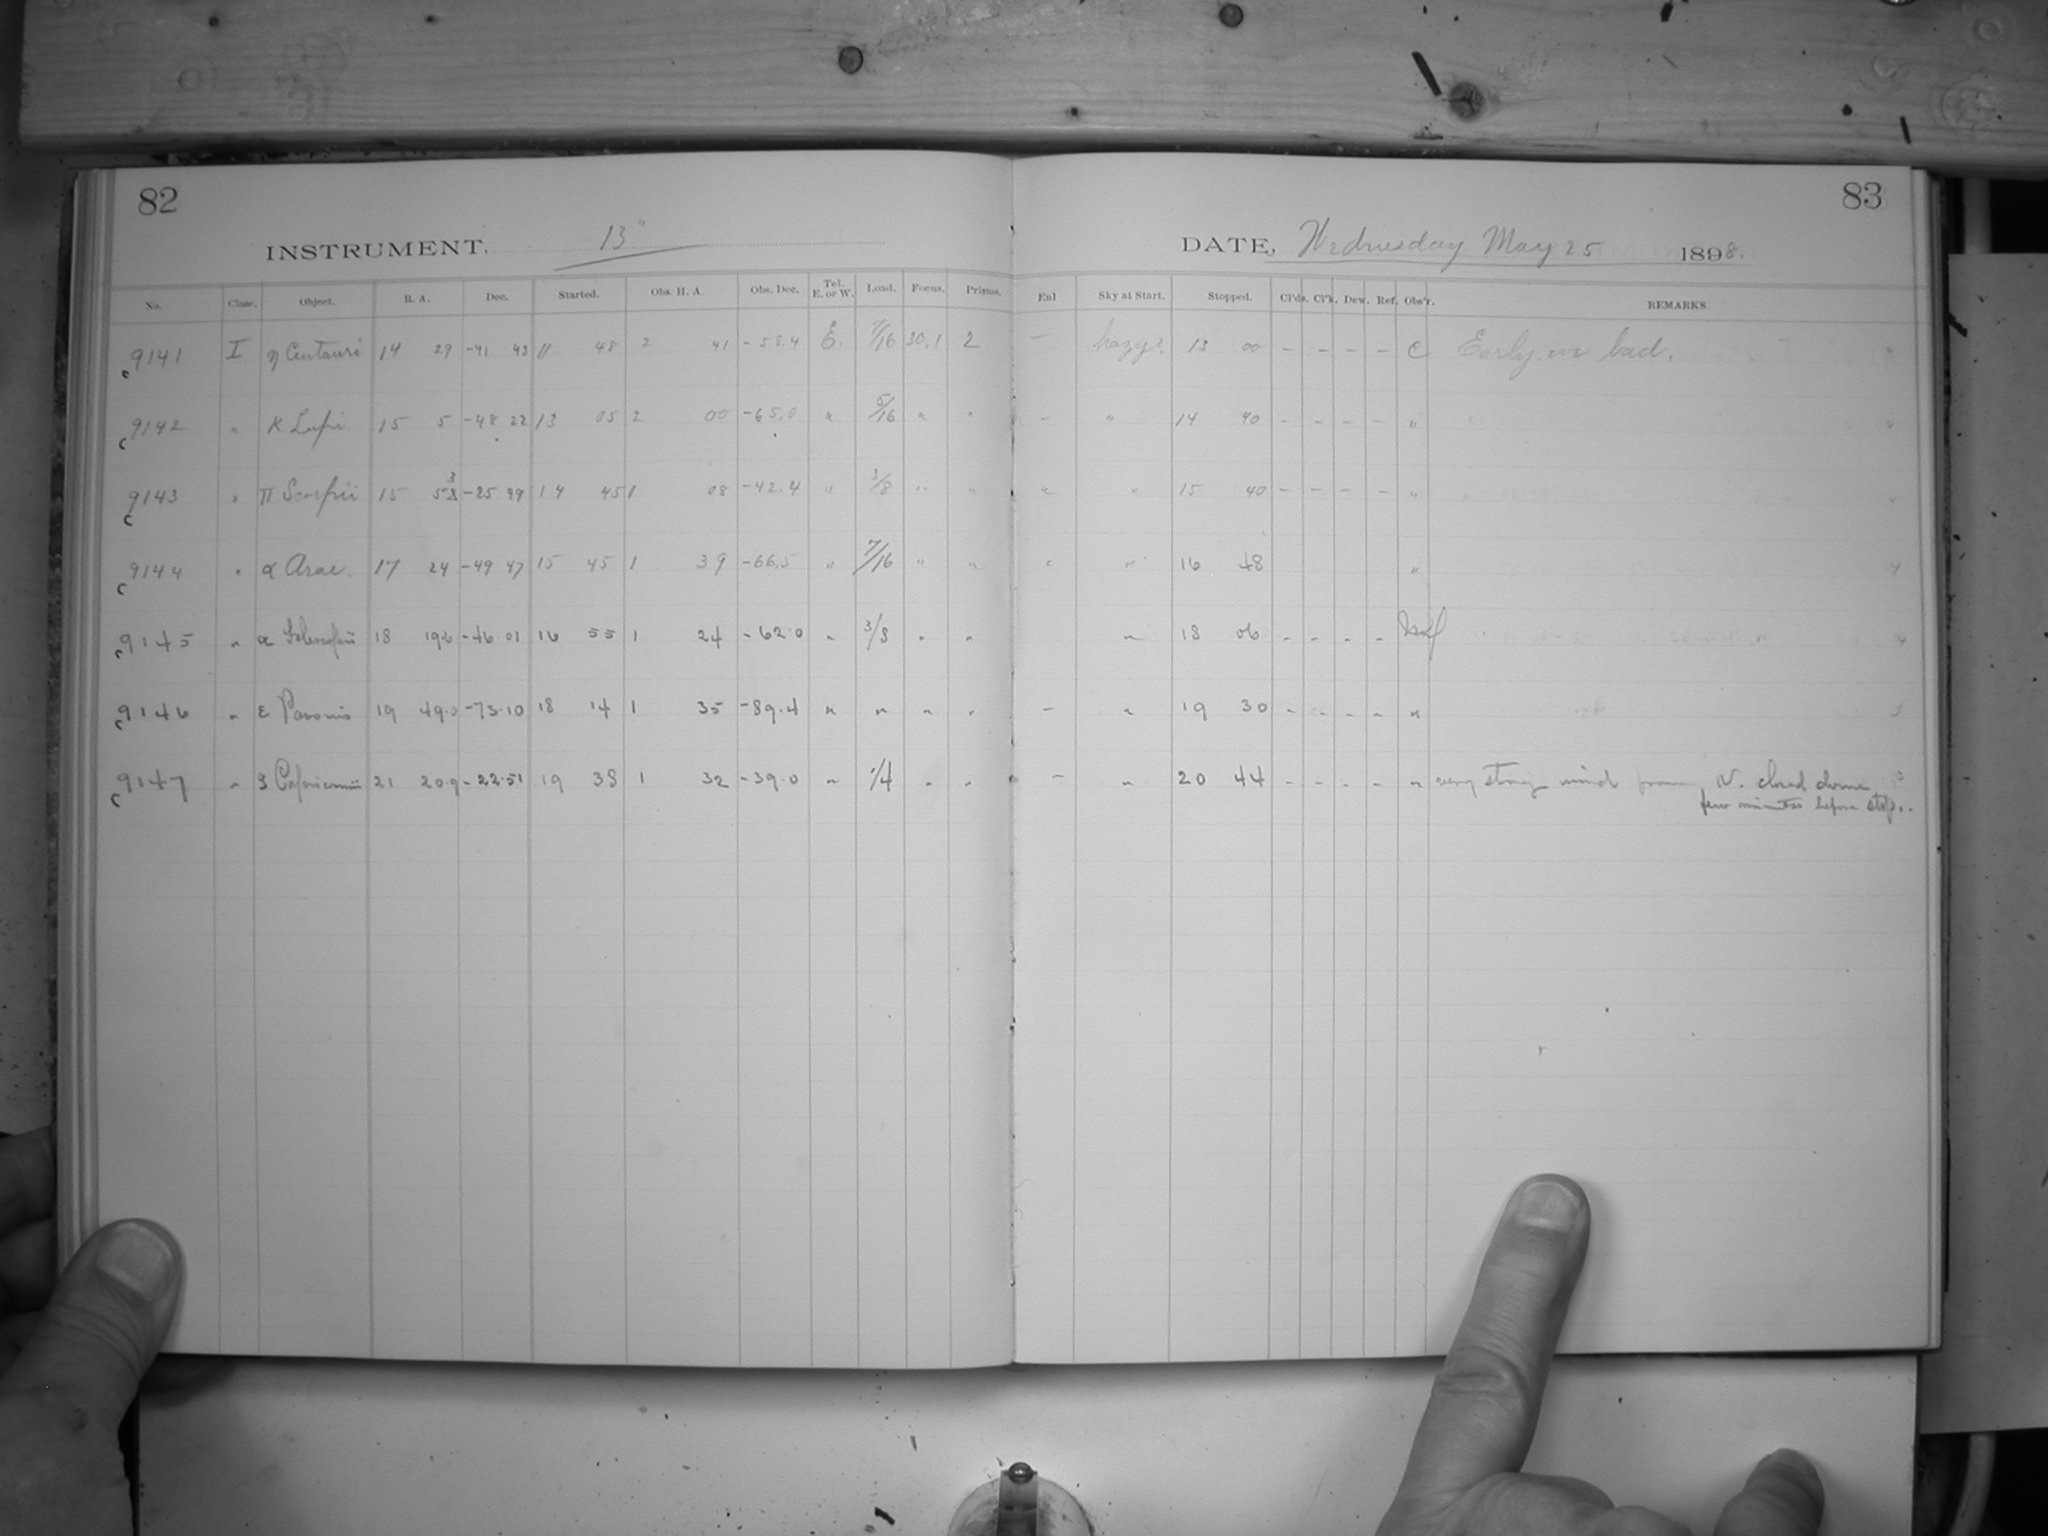 82
83
INSTRUMENT. 13"
DATE, Wednesday May 25 1898.
No. Class. Object. R. A. Dec. Started. Obs. H. A. Obs. Dec. Tel. E. or W. Load. Focus. Prisms. Enl Sky at Start. Stopped. Cl'ds. Cl'k. Dew. Ref. Obs'r. REMARKS.
9141 I η Centauri 14 29 -41 43 11 48 2 41 -58.4 E. 7/16 30.1 2 — hazy? 13 00 - - - - C Early bad.
9142 " κ Lupi 15 5 -48 22 13 05 2 00 -65.0 " 5/16 " " - " 14 40 - - - - "
9143 " π Scorpii 15 53 -25 49 14 45 1 08 -42.4 " 3/8 " " " " 15 40 - - - - "
9144 " α Arae. 17 24 -49 47 15 45 1 39 -66.5 " 7/16 " " " " 16 48 "
9145 " α Telescopii 18 19.6 -46 01 16 55 1 24 -62.0 " 3/8 " " " 18 06 - - - -
9146 " ε Pavonis 19 49.0 -73.10 18 14 1 35 -89.4 " " " " - " 19 30 - - - - "
9147 " ζ Capricornii 21 20.9 -22.51 19 38 1 32 -39.0 " 1/4 " " - " 20 44 - - - - " very strong wind from N. closed dome
few minutes before stop..